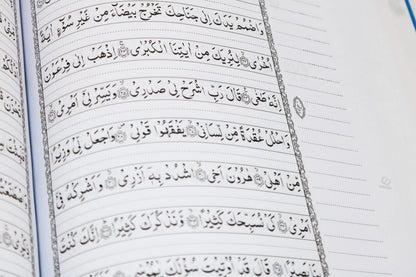 وَاضْمُمْ يَدَكَ إِلَى جَنَاحِكَ تَخْرُجْ بَيْضَاءَ مِنْ غَيْرِ سُوءٍ آيَةً
أُخْرَى ۝ لِنُرِيَكَ مِنْ آيَاتِنَا الْكُبْرَى ۝ اذْهَبْ إِلَى فِرْعَوْنَ
إِنَّهُ طَغَى ۝ قَالَ رَبِّ اشْرَحْ لِي صَدْرِي ۝ وَيَسِّرْ لِي أَمْرِي ۝
وَاحْلُلْ عُقْدَةً مِنْ لِسَانِي ۝ يَفْقَهُوا قَوْلِي ۝ وَاجْعَلْ لِي وَزِيرًا
مِنْ أَهْلِي ۝ هَارُونَ أَخِي ۝ اشْدُدْ بِهِ أَزْرِي ۝ وَأَشْرِكْهُ فِي
أَمْرِي ۝ كَيْ نُسَبِّحَكَ كَثِيرًا ۝ وَنَذْكُرَكَ كَثِيرًا ۝ إِنَّكَ كُنْتَ
بَصِيرًا ۝ قَالَ قَدْ أُوتِيتَ سُؤْلَكَ يَا مُوسَى